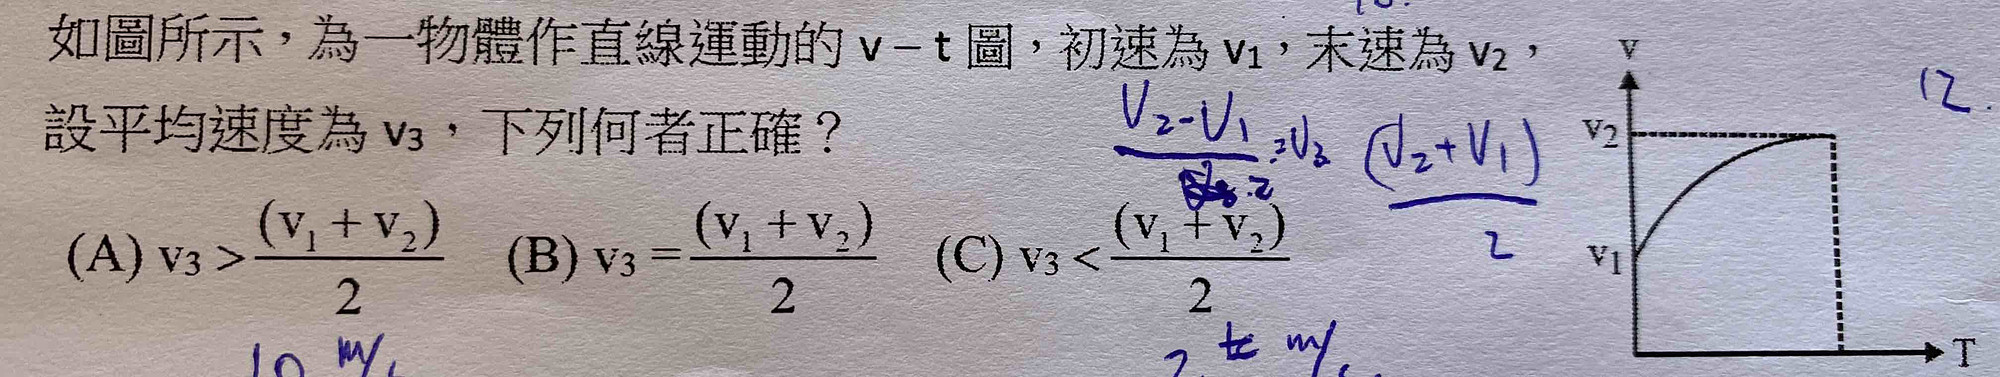 如圖所示，為一物體作直線運動的 v – t 圖，初速為 v₁，末速為 v₂，
設平均速度為 v₃，下列何者正確？
(A) v₃ > (v₁ + v₂)/2 (B) v₃ = (v₁ + v₂)/2 (C) v₃ < (v₁ + v₂)/2
V₂-V₁
(V₂+V₁)/2
12.
v
v₂
v₁
T
10 m/
m/